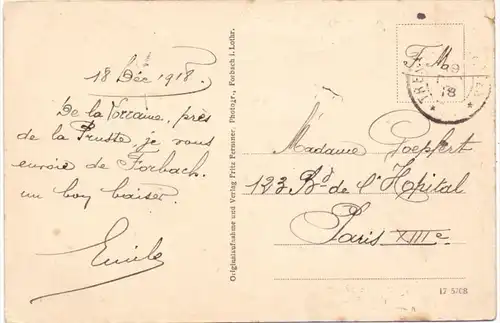 18 Déc 1918.
De la Lorraine, près
de la Prusse, je vous
envoie de Forbach.
un bon baiser.
Emile
Originalaufnahme und Verlag Fritz Fernsner, Photogr., Forbach i. Lothr.
F. M.
18
Madame Goepfert
123 Bd de l'Hopital
Paris XIIIe